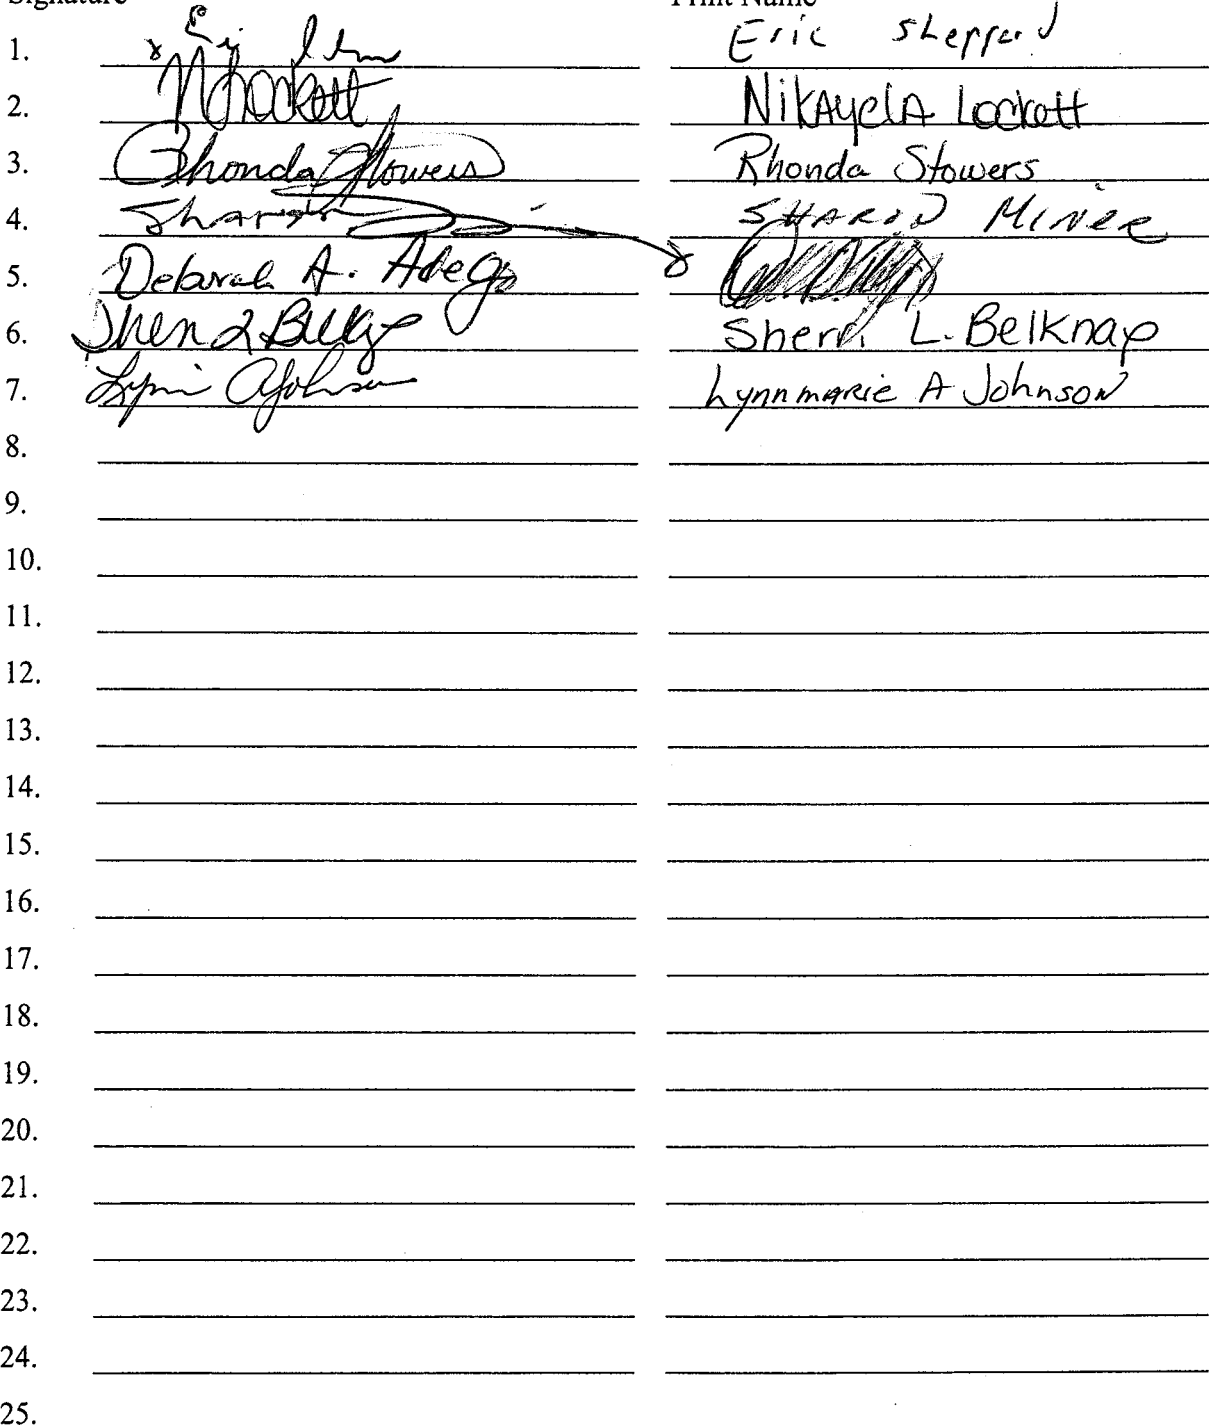 Signature Print Name
1. Eric Sheppard
2. NLockett NikAyelA Lockett
3. Rhonda Stowers Rhonda Stowers
4. Sharon SHARON MINER
5. Deborah A.
6. Sherri L Sherri L. Belknap
7. Lynn A Johnson Lynnmarie A Johnson
8.
9.
10.
11.
12.
13.
14.
15.
16.
17.
18.
19.
20.
21.
22.
23.
24.
25.